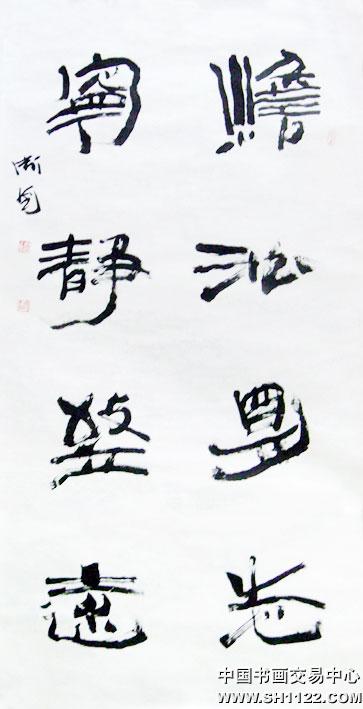 澹泊明志
寧靜致遠
中国书画交易中心
WWW.SH1122.COM